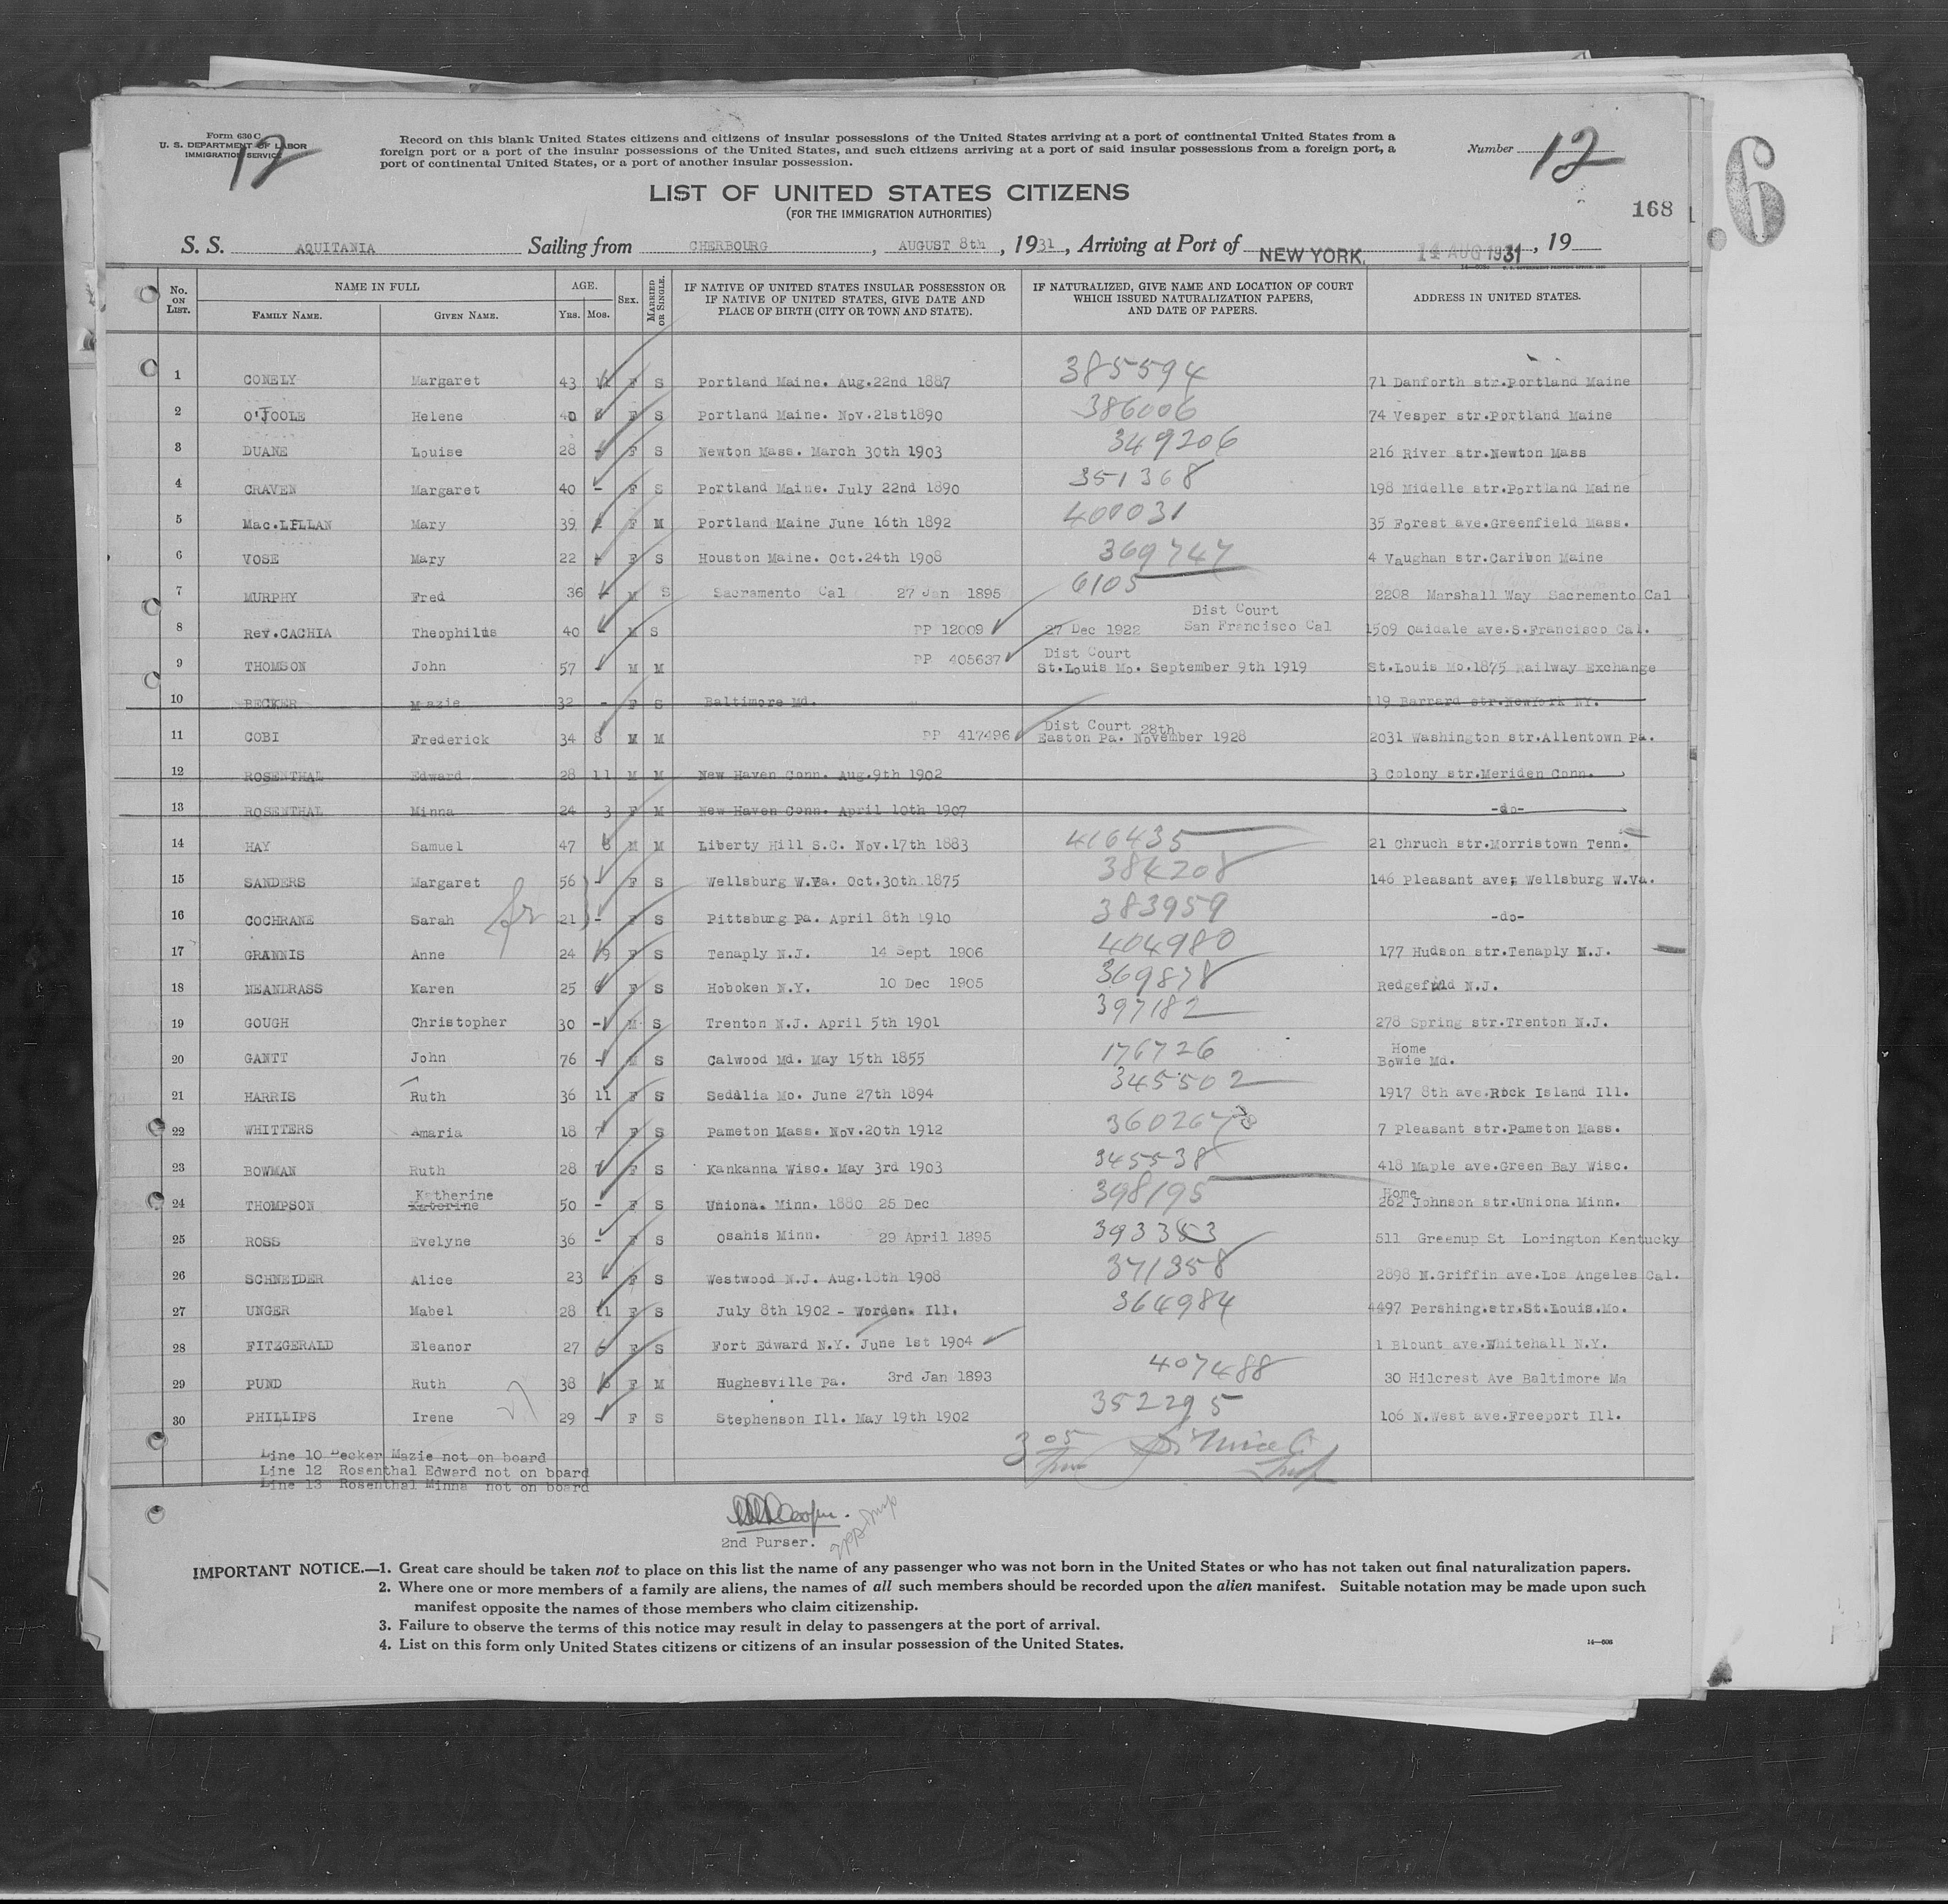 Form 630 C
U. S. DEPARTMENT OF LABOR
IMMIGRATION SERVICE
12
Record on this blank United States citizens and citizens of insular possessions of the United States arriving at a port of continental United States from a
foreign port or a port of the insular possessions of the United States, and such citizens arriving at a port of said insular possessions from a foreign port, a
port of continental United States, or a port of another insular possession.
Number 12
LIST OF UNITED STATES CITIZENS
(FOR THE IMMIGRATION AUTHORITIES)
168
6
S. S. AQUITANIA Sailing from CHERBOURG, AUGUST 8th, 1931, Arriving at Port of NEW YORK, 14 AUG 1931, 19
No. ON LIST. NAME IN FULL FAMILY NAME. GIVEN NAME. AGE. Yrs. Mos. SEX. MARRIED OR SINGLE. IF NATIVE OF UNITED STATES INSULAR POSSESSION OR IF NATIVE OF UNITED STATES, GIVE DATE AND PLACE OF BIRTH (CITY OR TOWN AND STATE). IF NATURALIZED, GIVE NAME AND LOCATION OF COURT WHICH ISSUED NATURALIZATION PAPERS, AND DATE OF PAPERS. ADDRESS IN UNITED STATES.
1 CONELY Margaret 43 11 F S Portland Maine. Aug.22nd 1887 385594 71 Danforth str.Portland Maine
2 O'TOOLE Helene 40 8 F S Portland Maine. Nov.21st1890 386006 74 Vesper str.Portland Maine
3 DUANE Louise 28 - F S Newton Mass. March 30th 1903 349206 216 River str.Newton Mass
4 CRAVEN Margaret 40 - F S Portland Maine. July 22nd 1890 351368 198 Midelle str.Portland Maine
5 Mac.LELLAN Mary 39 F M Portland Maine June 16th 1892 400031 35 Forest ave.Greenfield Mass.
6 VOSE Mary 22 F S Houston Maine. Oct.24th 1908 369747 4 Vaughan str.Caribon Maine
7 MURPHY Fred 36 M S Sacramento Cal 27 Jan 1895 6105 2208 Marshall Way Sacremento Cal
8 Rev.CACHIA Theophilus 40 - M S PP 12009 27 Dec 1922 Dist Court San Francisco Cal 1509 Oaidale ave.S.Francisco Cal.
9 THOMSON John 57 - M M PP 405637 Dist Court St.Louis Mo. September 9th 1919 St.Louis Mo.1875 Railway Exchange
10 BECKER Mazie 32 - F S Baltimore Md. 119 Barrard str.NewYork NY.
11 COBI Frederick 34 8 M M PP 417496 Dist Court Easton Pa. November 28th 1928 2031 Washington str.Allentown Pa.
12 ROSENTHAL Edward 28 11 M M New Haven Conn. Aug.9th 1902 3 Colony str.Meriden Conn.
13 ROSENTHAL Minna 24 3 F M New Haven Conn. April 10th 1907 -do-
14 HAY Samuel 47 8 M M Liberty Hill S.C. Nov.17th 1883 416435 21 Chruch str.Morristown Tenn.
15 SANDERS Margaret 56 - F S Wellsburg W.Va. Oct.30th.1875 384208 146 Pleasant ave; Wellsburg W.Va.
16 COCHRANE Sarah 21 - F S Pittsburg Pa. April 8th 1910 383959 -do-
17 GRANNIS Anne 24 9 F S Tenaply N.J. 14 Sept 1906 404980 177 Hudson str.Tenaply N.J.
18 MEANDRASS Karen 25 F S Hoboken N.Y. 10 Dec 1905 369878 Redgefield N.J.
19 GOUGH Christopher 30 - M S Trenton N.J. April 5th 1901 397182 278 Spring str.Trenton N.J.
20 GANTT John 76 - M S Calwood Md. May 15th 1855 176726 Home Bowie Md.
21 HARRIS Ruth 36 11 F S Sedalia Mo. June 27th 1894 345502 1917 8th ave.Rock Island Ill.
22 WHITTERS Amaria 18 7 F S Pameton Mass. Nov.20th 1912 360267 7 Pleasant str.Pameton Mass.
23 BOWMAN Ruth 28 F S Kankanna Wisc. May 3rd 1903 345538 418 Maple ave.Green Bay Wisc.
24 THOMPSON Katherine Katerine 50 - F S Uniona. Minn. 1880 25 Dec 398195 Home 262 Johnson str.Uniona Minn.
25 ROSS Evelyne 36 - F S Osahis Minn. 29 April 1895 393353 511 Greenup St Lorington Kentucky
26 SCHNEIDER Alice 23 - F S Westwood N.J. Aug.18th 1908 371358 2898 N.Griffin ave.Los Angeles Cal.
27 UNGER Mabel 28 11 F S July 8th 1902 - Worden. Ill. 364984 4497 Pershing.str.St.Louis.Mo.
28 FITZGERALD Eleanor 27 F S Fort Edward N.Y. June 1st 1904 1 Blount ave.Whitehall N.Y.
29 PUND Ruth 38 F M Hughesville Pa. 3rd Jan 1893 407488 30 Hilcrest Ave Baltimore Ma
30 PHILLIPS Irene 29 - F S Stephenson Ill. May 19th 1902 352295 106 N.West ave.Freeport Ill.
Line 10 Becker Mazie not on board
Line 12 Rosenthal Edward not on board
Line 13 Rosenthal Minna not on board
305
2nd Purser.
IMPORTANT NOTICE.—1. Great care should be taken not to place on this list the name of any passenger who was not born in the United States or who has not taken out final naturalization papers.
2. Where one or more members of a family are aliens, the names of all such members should be recorded upon the alien manifest. Suitable notation may be made upon such
manifest opposite the names of those members who claim citizenship.
3. Failure to observe the terms of this notice may result in delay to passengers at the port of arrival.
4. List on this form only United States citizens or citizens of an insular possession of the United States.
14—606